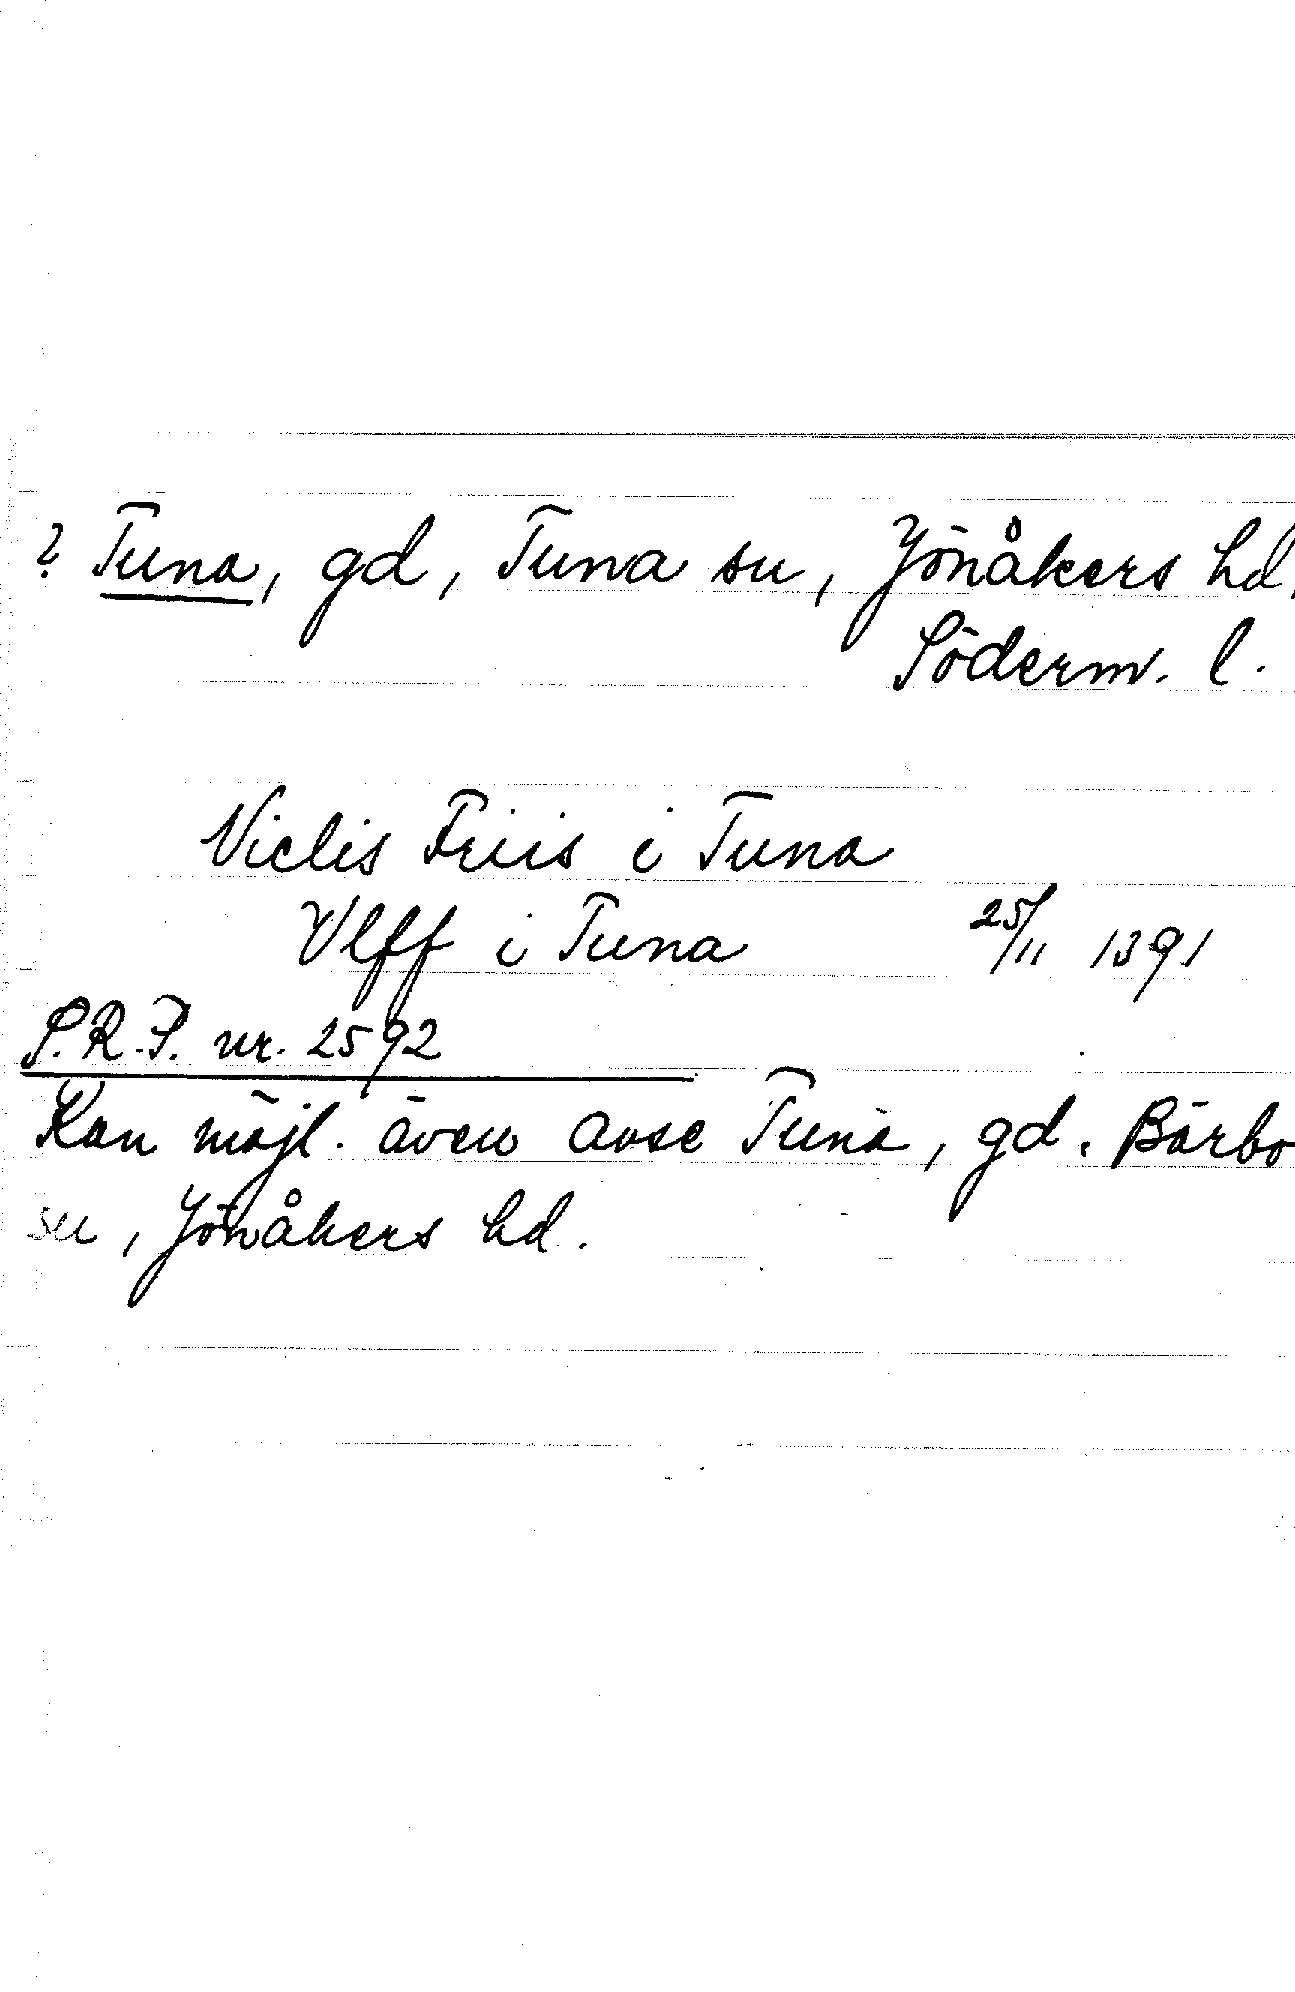 ? Tuna, gd, Tuna sn, Jönåkers hd,
Söderm. l.
Niclis Friis i Tuna
Vlff i Tuna 25/11 1391
S.R.P. nr. 2592
Kan möjl. även avse Tuna, gd. Bärbo
sn, Jönåkers hd.